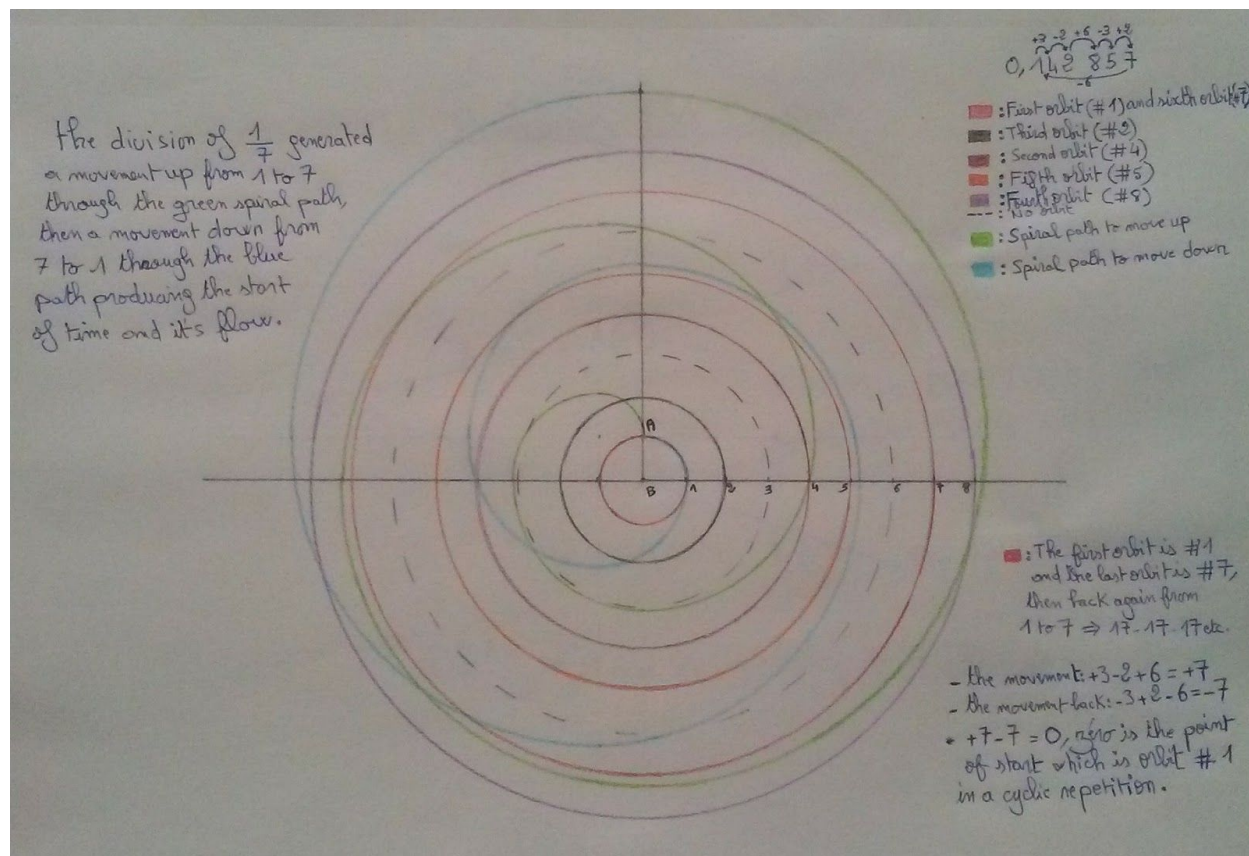 the division of 1/7 generated
a movement up from 1 to 7
through the green spiral path,
then a movement down from
7 to 1 through the blue
path producing the start
of time and it's flow.
+3 -2 +6 -3 +2
0,142 857
-6
: First orbit (#1) and sixth orbit (#7)
: Third orbit (#2)
: Second orbit (#4)
: Fifth orbit (#5)
: Fourth orbit (#8)
: No orbit
: Spiral path to move up
: Spiral path to move down
A
B 1 2 3 4 5 6 7 8
: The first orbit is #1
and the last orbit is #7,
then back again from
1 to 7 ⇒ 17-17-17 etc.
- the movement: +3-2+6=+7
- the movement back: -3+2-6=-7
• +7-7=0, zéro is the point
of start which is orbit #1
in a cyclic repetition.